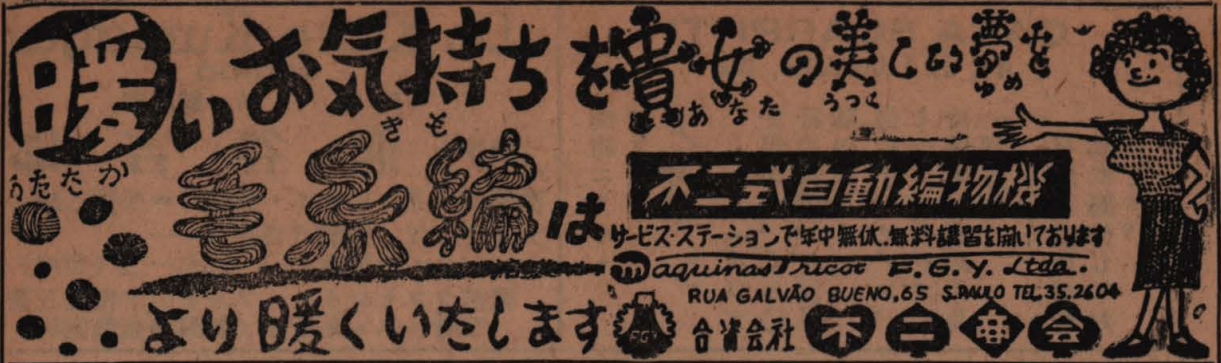 暖いお気持ちを
あたたか
きも
毛糸編は
より暖くいたします
貴女の美しい夢を
あなた
うつく
ゆめ
不二式自動編物機
サービス・ステーションで年中無休、無料講習を開いております
maquinas Tricot F.G.Y. Ltda.
RUA GALVÃO BUENO, 65 S. PAULO TEL. 35.2604
合資会社 不二商会